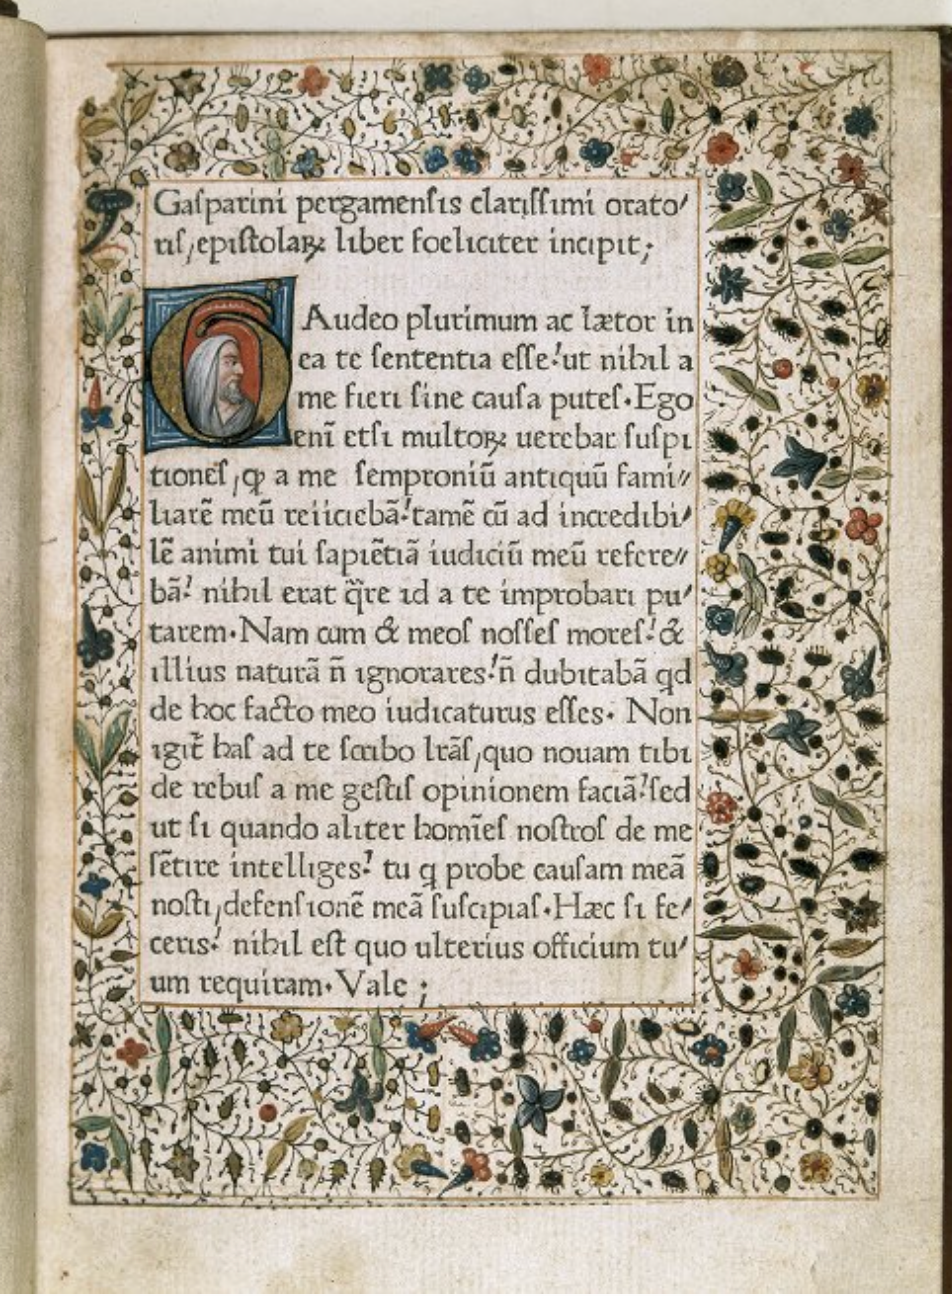 Gasparini pergamensis clarissimi orato/
ris, epistolaꝝ liber foeliciter incipit;
GAudeo plurimum ac lætor in
ea te sententia esse: ut nihil a
me fieri sine causa putes. Ego
eni᷎ etsi multoꝝ uerebar suspi
tiones, ꝙ a me semproniū antiquū fami//
liarē meū reiiciebā: tamē cū ad incredibi/
lē animi tui sapiētiā iudiciū meū refere//
bā: nihil erat q̄re id a te improbari pu/
tarem. Nam cum & meos nosses mores: &
illius naturā n̄ ignorares: n̄ dubitabā qd
de hoc facto meo iudicaturus esses. Non
igit̄ has ad te scribo lrās, quo nouam tibi
de rebus a me gestis opinionem faciā: sed
ut si quando aliter homīes nostros de me
sētire intelliges: tu q probe causam meā
nosti, defensionē meā suscipias. Hæc si fe/
ceris: nihil est quo ulterius officium tu/
um requiram. Vale;